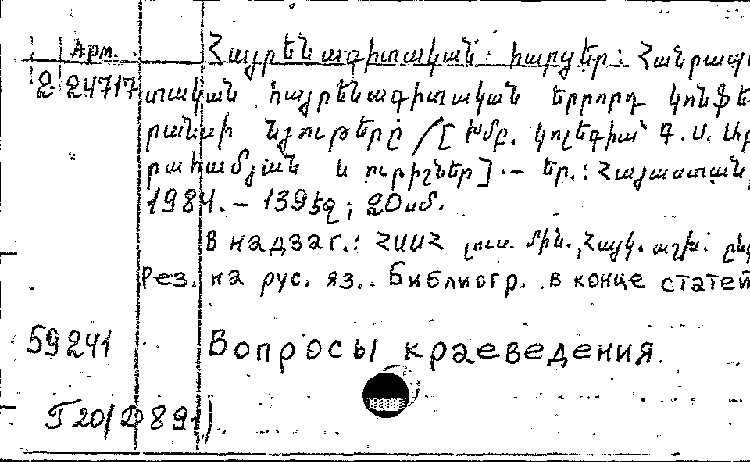 Арм. Հայրենագիտական հարցեր: Հանրապե
2 24717 տական հայրենագիտական երրորդ կոնֆե
րանսի նյութերը /[Խմբ. կոլեգիա՝ Գ. Ս. Աբ
րահամյան և ուրիշներ] — Եր.: Հայաստան,
1984. — 139 էջ; 20 սմ.
В надзаг.: ՀՍՍՀ լուս. մին. Հայկ. աշխ. ընկ
Рез. на рус. яз.. Библиогр. в конце статей
59241 Вопросы краеведения.
Г20(Ф891)